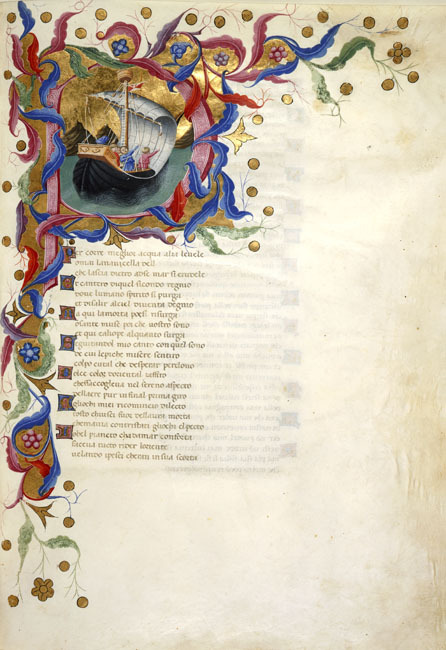 er correr meglior acqua alce le uele
omai la nauicella
che lascia dietro ad se mar si crudele
et cantero di quel secondo regno
doue lumano spirito si purga
et di salir al ciel diuenta degno
a qui la morta poesi risurga
o sante muse poi che uostro sono
et qui caliope alquanto surga
eguitando il mio canto con quel sono
de cui le piche misere sentiro
colpo cutal che desperar perdono
olce color doriental zaffiro
che saccoglieua nel sereno aspecto
del aere pur insin al primo giro
gliochi miei ricomincio dilecto
tosto chusci fuor dellaura morta
che mauia contristati gliochi el pecto
o bel pianeto chadamar conforta
faceua tucto rider loriente
uelando ipesci cheran in sua scorta